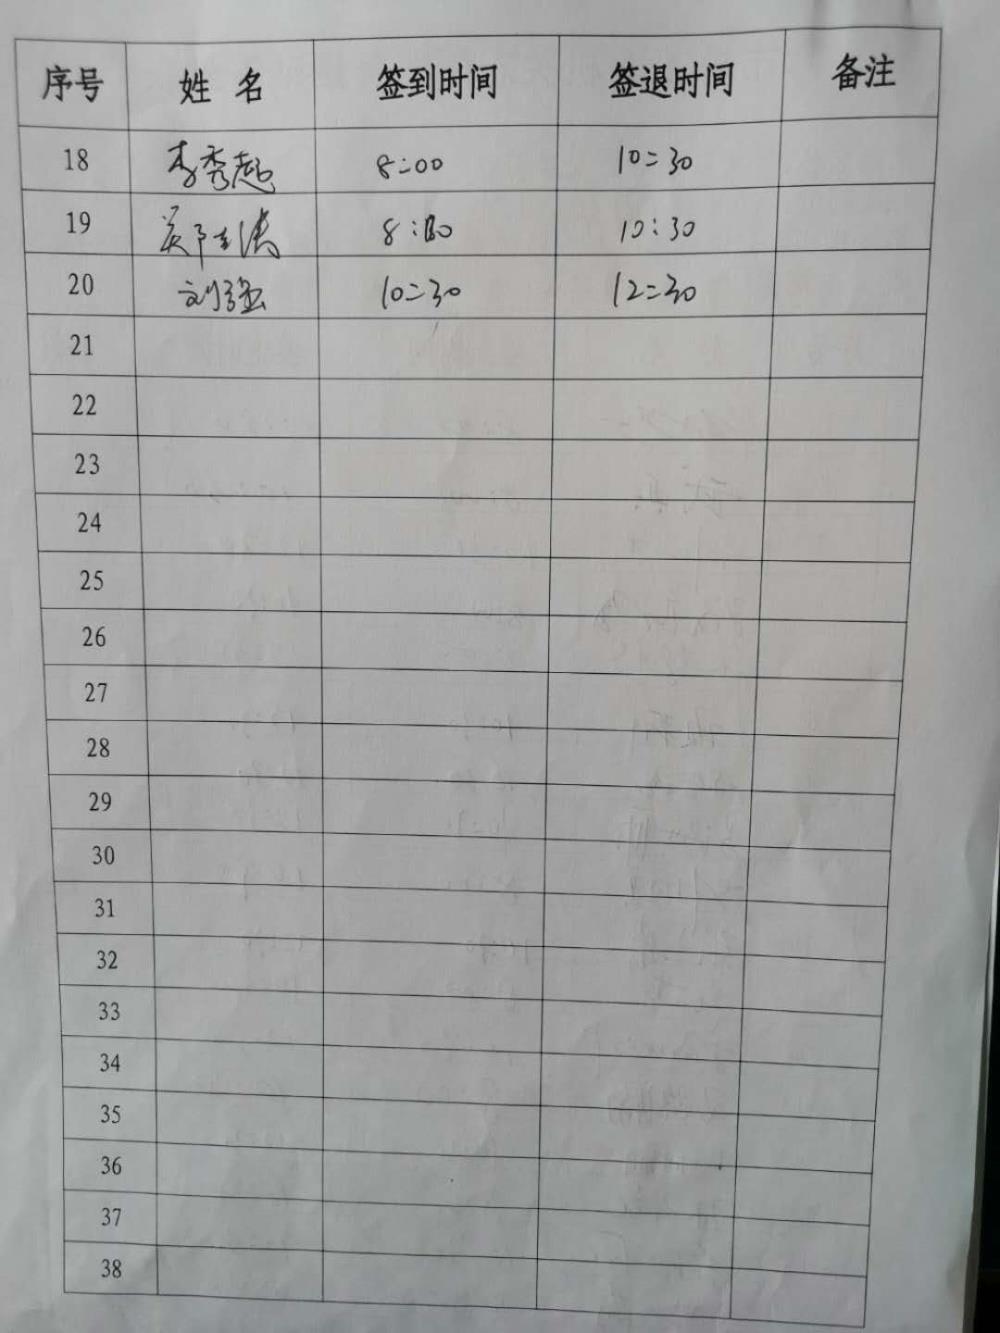 序号 姓 名 签到时间 签退时间 备注
18 李秀超 8:00 10:30
19 8:00 10:30
20 刘强 10:30 12:30
21
22
23
24
25
26
27
28
29
30
31
32
33
34
35
36
37
38